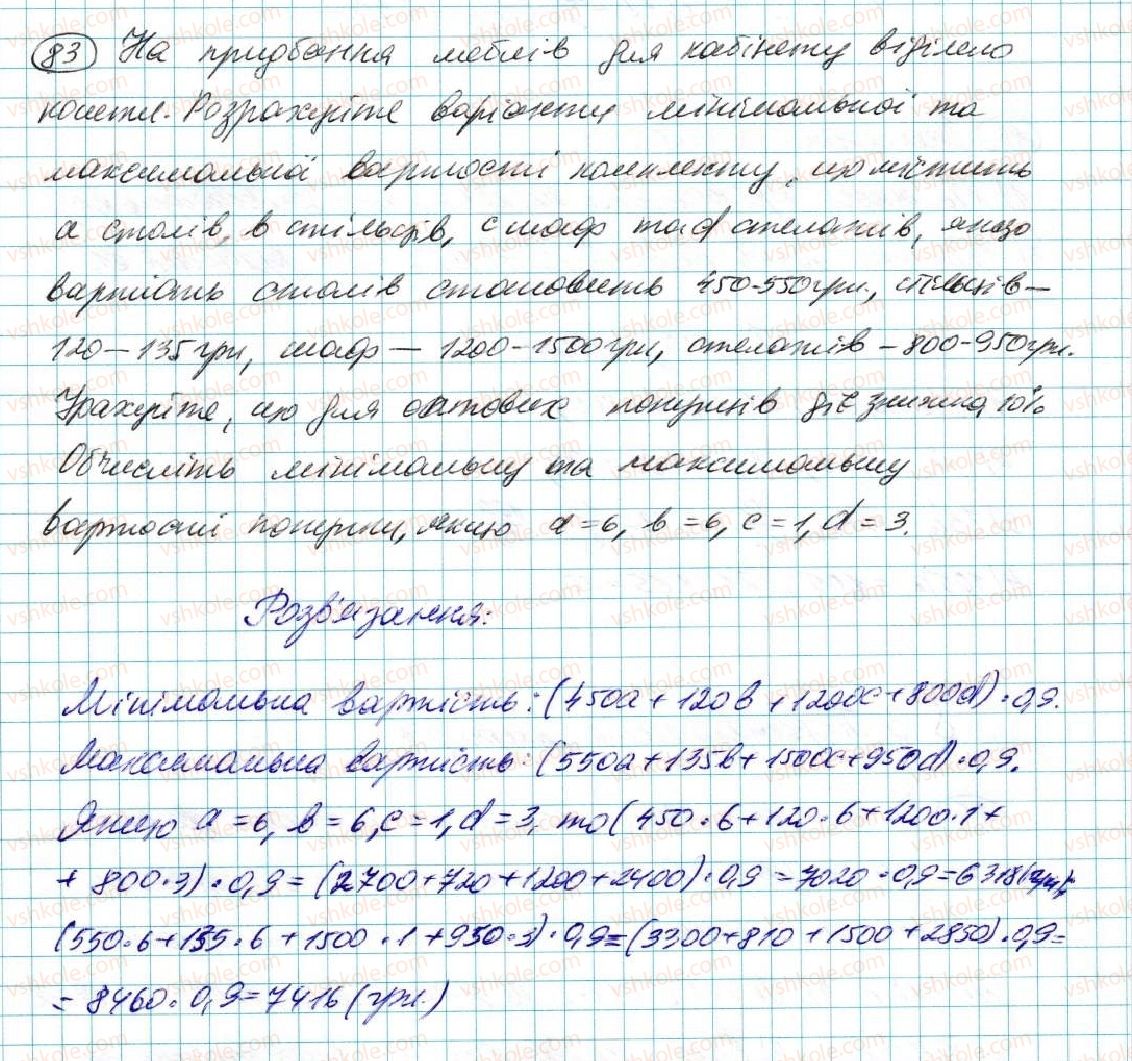 83 На придбання меблів для кабінету виділено
кошти. Розрахуйте варіанти мінімальної та
максимальної вартості комплекту, що містить
a столів, b стільців, c шаф та d стелажів, якщо
вартість столів становить 450-550 грн., стільців —
120 — 135 грн, шаф — 1200 - 1500 грн, стелажів - 800-950 грн.
Урахуйте, що для оптових покупців діє знижка 10%
Обчисліть мінімальну та максимальну
вартості покупки, якщо a = 6, b = 6, c = 1, d = 3.
Розв'язання:
Мінімальна вартість: (450a + 120b + 1200c + 800d) · 0,9.
Максимальна вартість: (550a + 135b + 1500c + 950d) · 0,9.
Якщо a = 6, b = 6, c = 1, d = 3, то (450 · 6 + 120 · 6 + 1200 · 1 +
+ 800 · 3) · 0,9 = (2700 + 720 + 1200 + 2400) · 0,9 = 7020 · 0,9 = 6318 (грн),
(550 · 6 + 135 · 6 + 1500 · 1 + 950 · 3) · 0,9 = (3300 + 810 + 1500 + 2850) · 0,9 =
= 8460 · 0,9 = 7416 (грн.)